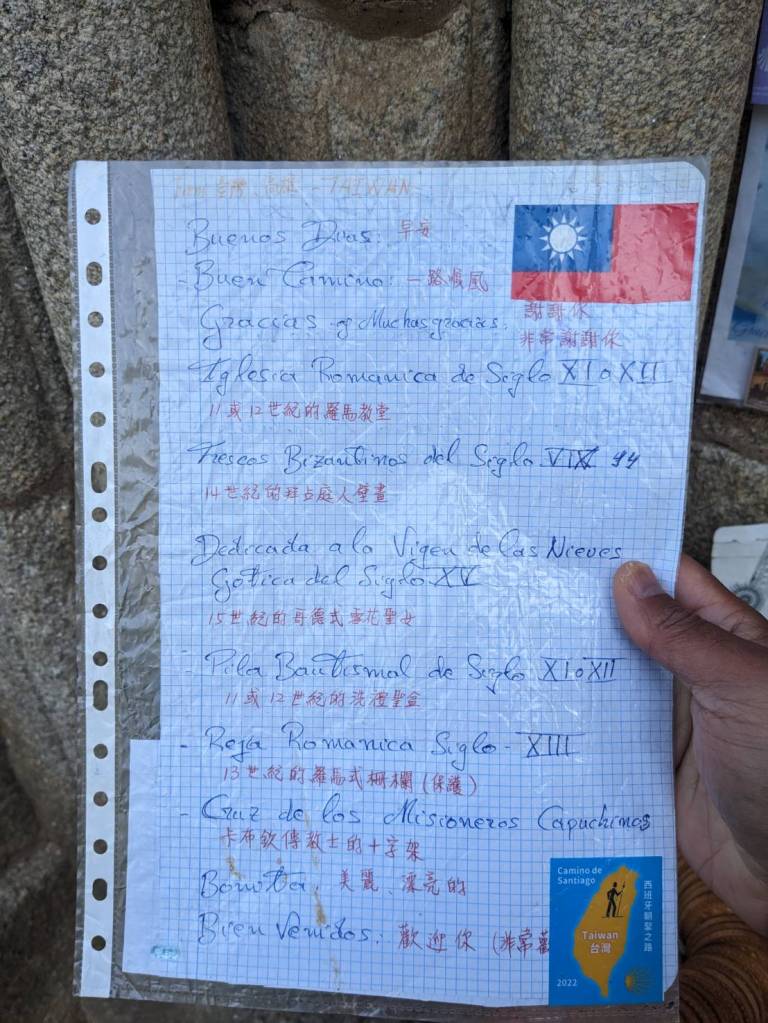 台灣 高雄 - TAIWAN
Buenos Dias: 早安
- Buen Camino: 一路順風
Gracias y Muchas gracias.
謝謝你
非常謝謝你
Iglesia Romanica de Siglo XI o XII
11 或 12 世紀的羅馬教堂
Frescos Bizantinos del Siglo VIX 14
14 世紀的拜占庭人壁畫
Dedicada a la Vigen de las Nieves
Gótica del Siglo XV
15 世紀的哥德式雪花聖女
- Pila Bautismal de Siglo XI o XII
11 或 12 世紀的洗禮聖盆
- Reja Romanica Siglo - XIII
13 世紀的羅馬式柵欄 (保護)
- Cruz de los Misioneros Capuchinos
卡布欽傳教士的十字架
Bonita. 美麗、漂亮的
Bien Venidos. 歡迎你 (非常歡
Camino de
Santiago
西班牙朝聖之路
Taiwan
台灣
2022